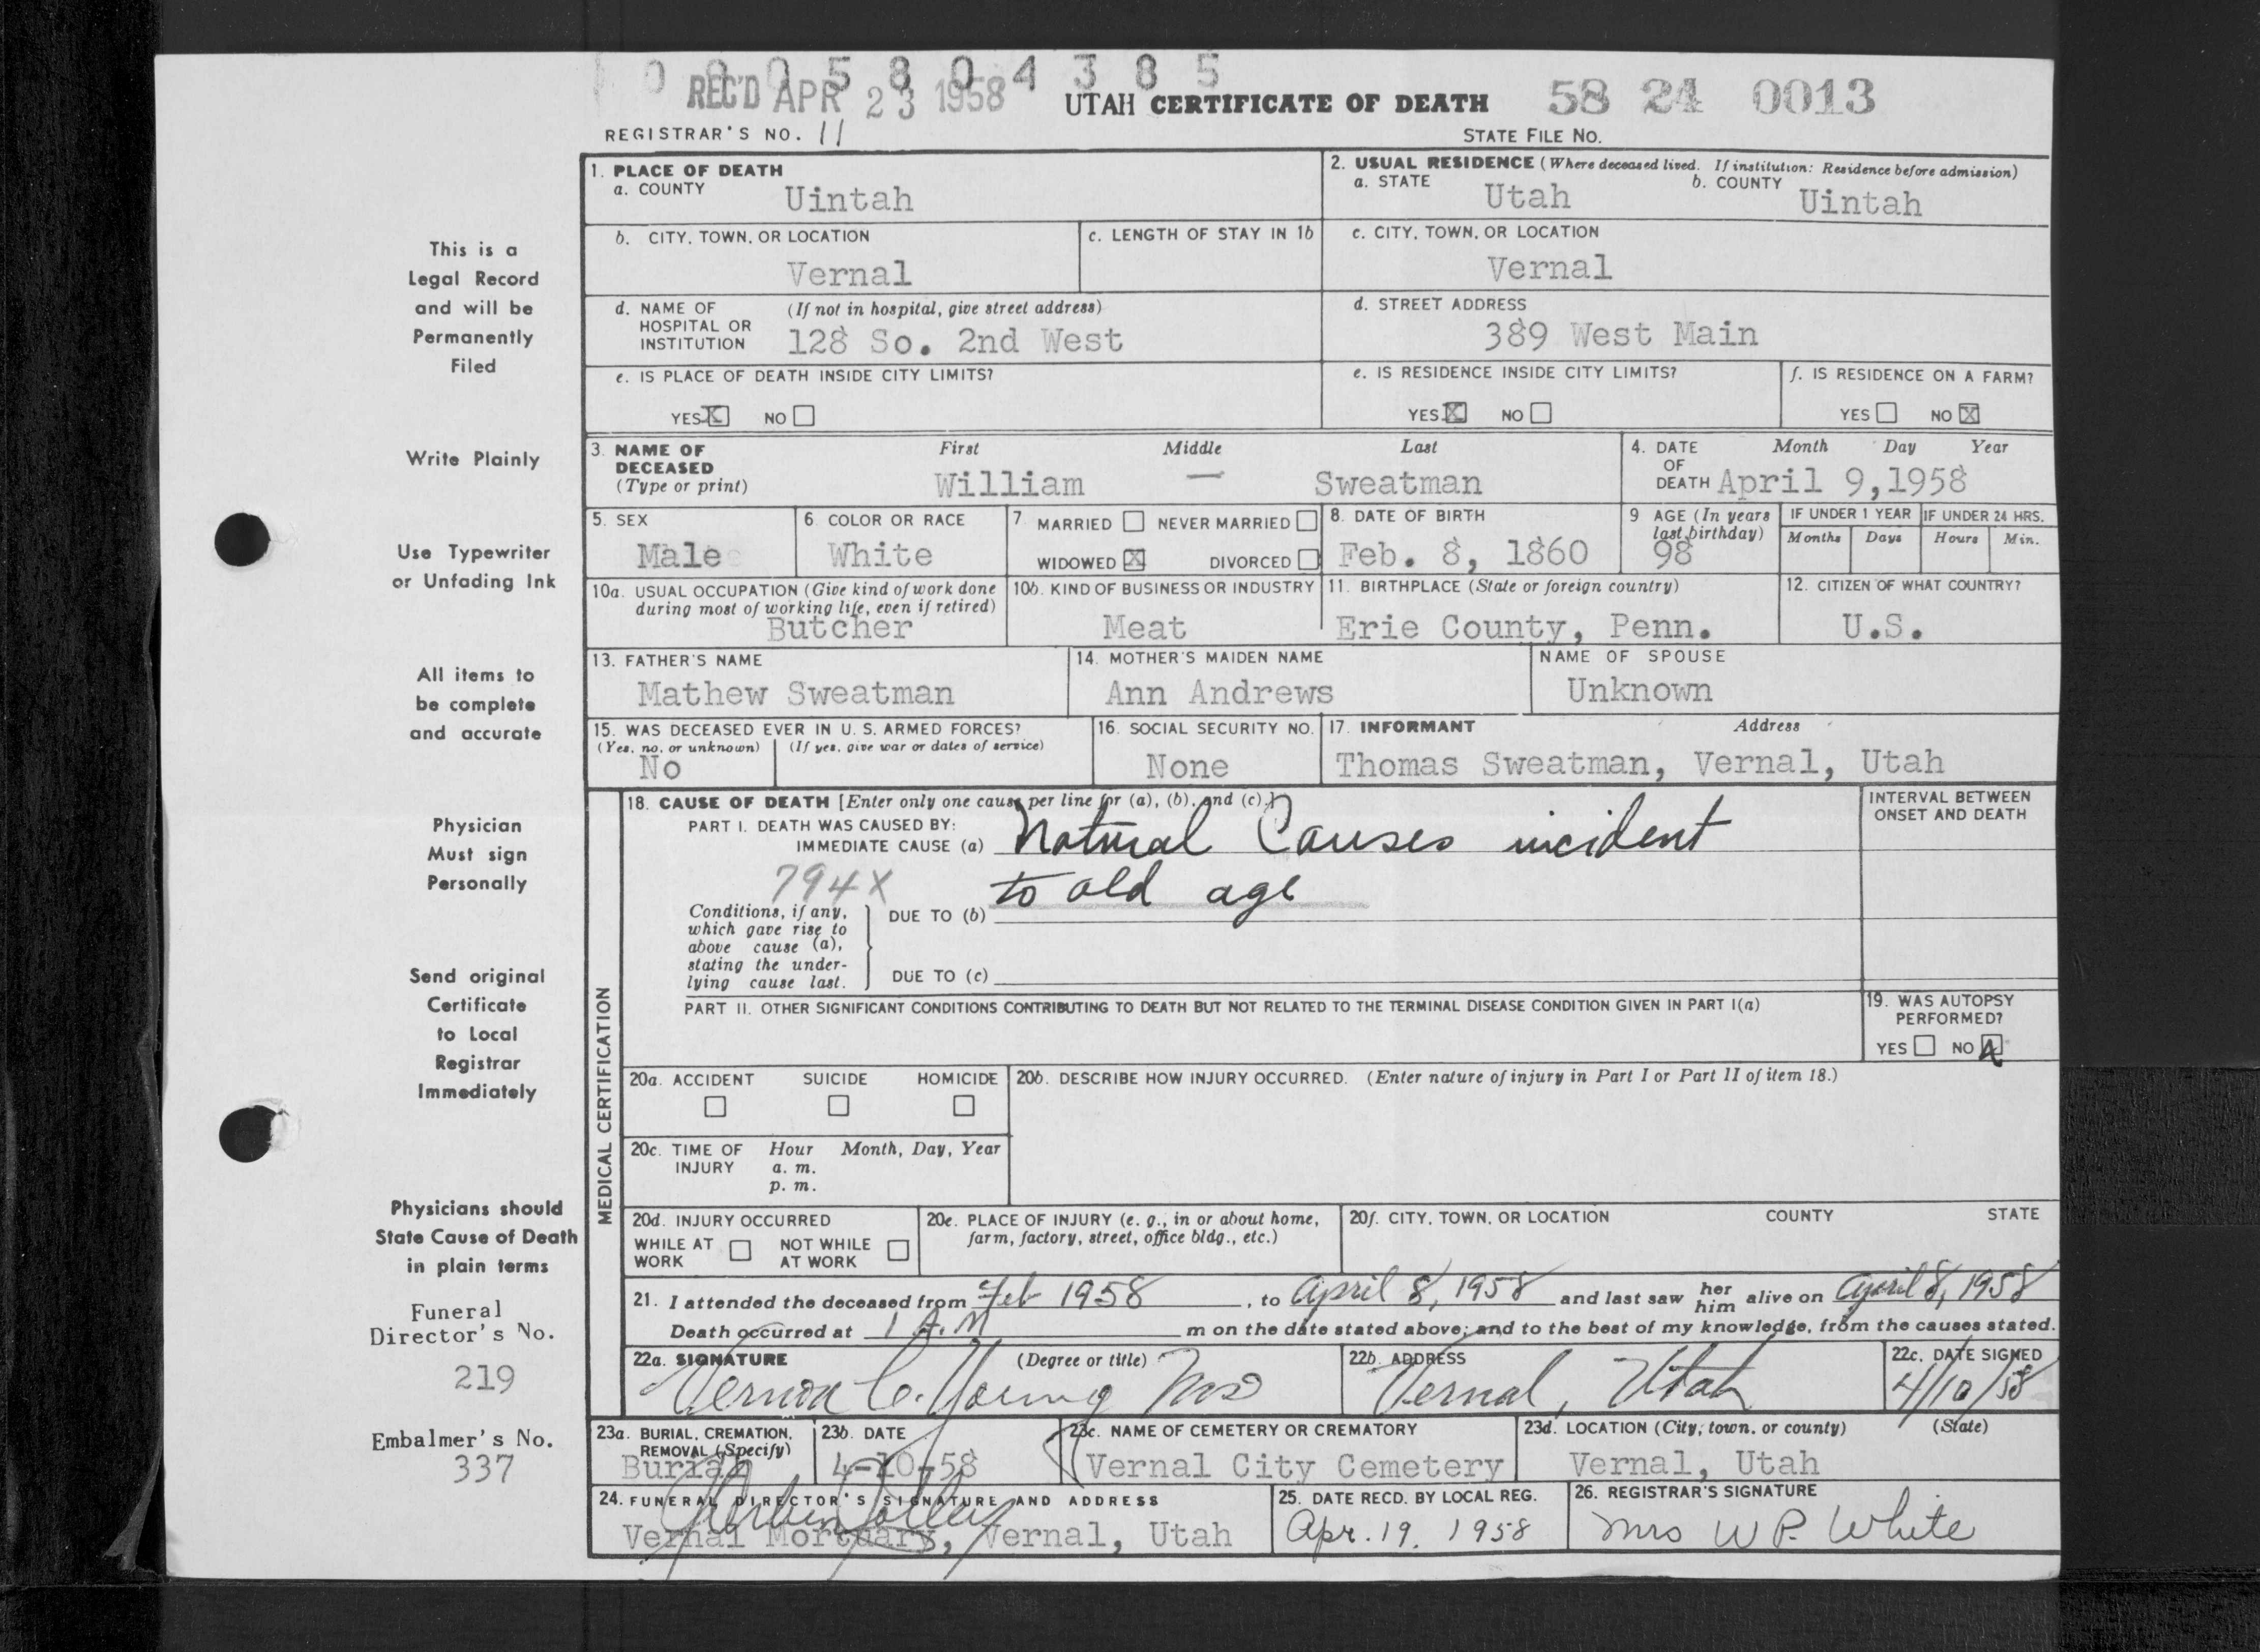 0 0 0 5 8 0 4 3 8 5
REC'D APR 23 1958
UTAH CERTIFICATE OF DEATH
58 24 0013
REGISTRAR'S NO. 11
STATE FILE NO.
1. PLACE OF DEATH
a. COUNTY
Uintah
2. USUAL RESIDENCE (Where deceased lived. If institution: Residence before admission)
a. STATE
Utah
b. COUNTY
Uintah
b. CITY, TOWN, OR LOCATION
Vernal
c. LENGTH OF STAY IN 1b
c. CITY, TOWN, OR LOCATION
Vernal
d. NAME OF HOSPITAL OR INSTITUTION
(If not in hospital, give street address)
128 So. 2nd West
d. STREET ADDRESS
389 West Main
e. IS PLACE OF DEATH INSIDE CITY LIMITS?
YES X NO
e. IS RESIDENCE INSIDE CITY LIMITS?
YES X NO
f. IS RESIDENCE ON A FARM?
YES NO X
3. NAME OF DECEASED (Type or print)
First Middle Last
William — Sweatman
4. DATE OF DEATH
Month Day Year
April 9, 1958
5. SEX
Male
6. COLOR OR RACE
White
7 MARRIED NEVER MARRIED
WIDOWED X DIVORCED
8. DATE OF BIRTH
Feb. 8, 1860
9 AGE (In years last birthday)
98
IF UNDER 1 YEAR
Months Days
IF UNDER 24 HRS.
Hours Min.
10a. USUAL OCCUPATION (Give kind of work done during most of working life, even if retired)
Butcher
10b. KIND OF BUSINESS OR INDUSTRY
Meat
11. BIRTHPLACE (State or foreign country)
Erie County, Penn.
12. CITIZEN OF WHAT COUNTRY?
U.S.
13. FATHER'S NAME
Mathew Sweatman
14. MOTHER'S MAIDEN NAME
Ann Andrews
NAME OF SPOUSE
Unknown
15. WAS DECEASED EVER IN U. S. ARMED FORCES?
(Yes, no, or unknown) (If yes, give war or dates of service)
No
16. SOCIAL SECURITY NO.
None
17. INFORMANT Address
Thomas Sweatman, Vernal, Utah
MEDICAL CERTIFICATION
18. CAUSE OF DEATH [Enter only one cause per line for (a), (b), and (c).]
PART I. DEATH WAS CAUSED BY:
IMMEDIATE CAUSE (a) Natural Causes incident
794X
to old age
Conditions, if any, which gave rise to above cause (a), stating the underlying cause last.
DUE TO (b)
DUE TO (c)
INTERVAL BETWEEN ONSET AND DEATH
PART II. OTHER SIGNIFICANT CONDITIONS CONTRIBUTING TO DEATH BUT NOT RELATED TO THE TERMINAL DISEASE CONDITION GIVEN IN PART I(a)
19. WAS AUTOPSY PERFORMED?
YES NO X
20a. ACCIDENT SUICIDE HOMICIDE
20b. DESCRIBE HOW INJURY OCCURRED. (Enter nature of injury in Part I or Part II of item 18.)
20c. TIME OF INJURY
Hour Month, Day, Year
a. m.
p. m.
20d. INJURY OCCURRED
WHILE AT WORK NOT WHILE AT WORK
20e. PLACE OF INJURY (e. g., in or about home, farm, factory, street, office bldg., etc.)
20f. CITY, TOWN, OR LOCATION COUNTY STATE
21. I attended the deceased from Feb 1958, to April 8, 1958 and last saw her him alive on April 8, 1958
Death occurred at 1 A.M m on the date stated above; and to the best of my knowledge, from the causes stated.
22a. SIGNATURE (Degree or title)
Vernon C. Young MD
22b. ADDRESS
Vernal, Utah
22c. DATE SIGNED
4/10/58
23a. BURIAL, CREMATION, REMOVAL (Specify)
Burial
23b. DATE
4-10-58
23c. NAME OF CEMETERY OR CREMATORY
Vernal City Cemetery
23d. LOCATION (City, town, or county) (State)
Vernal, Utah
24. FUNERAL DIRECTOR'S SIGNATURE AND ADDRESS
Vernal Mortuary, Vernal, Utah
25. DATE RECD. BY LOCAL REG.
Apr. 19, 1958
26. REGISTRAR'S SIGNATURE
Mrs W P. White
This is a
Legal Record
and will be
Permanently
Filed
Write Plainly
Use Typewriter
or Unfading Ink
All items to
be complete
and accurate
Physician
Must sign
Personally
Send original
Certificate
to Local
Registrar
Immediately
Physicians should
State Cause of Death
in plain terms
Funeral
Director's No.
219
Embalmer's No.
337